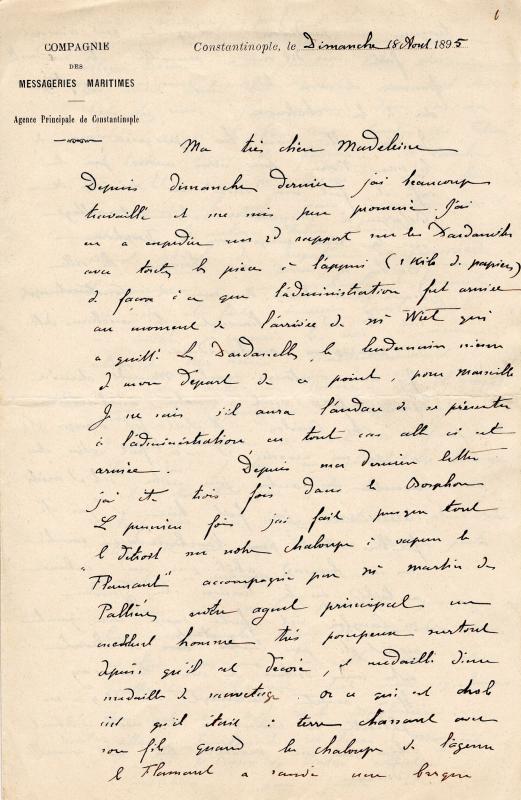 COMPAGNIE
DES
MESSAGERIES MARITIMES
Agence Principale de Constantinople
Constantinople, le Dimanche 18 Aout 1895
Ma très chère Madeleine
Depuis dimanche dernier j'ai beaucoup
travaillé et me suis peu promené. J'ai
eu a expedier un 2d rapport sur les Dardanelles
avec toutes les pièces à l'appui (1 Kilo de papiers)
de façon à ce que l'administration fut armée
au moment de l'arrivée de Mr Wiet qui
a quitté les Dardanelles le lendemain même
de mon départ de ce point, pour Marseille
Je ne sais s'il aura l'audace de se présenter
à l'administration en tout cas elle ci est
armée. Depuis ma dernière lettre
j'ai été trois fois dans le Bosphore
La première fois j'ai fait presque tout
le détroit sur notre chaloupe à vapeur le
"Flamant" accompagné par Mr Martin des
Pallières notre agent principal un
excellent homme très pompeux surtout
depuis qu'il est décoré, et medaillé d'une
medaille de sauvetage. or ce qui est drole
c'est qu'il était à terre chassant avec
son fils quand la chaloupe de l'agence
le Flamant a sauvé une barque